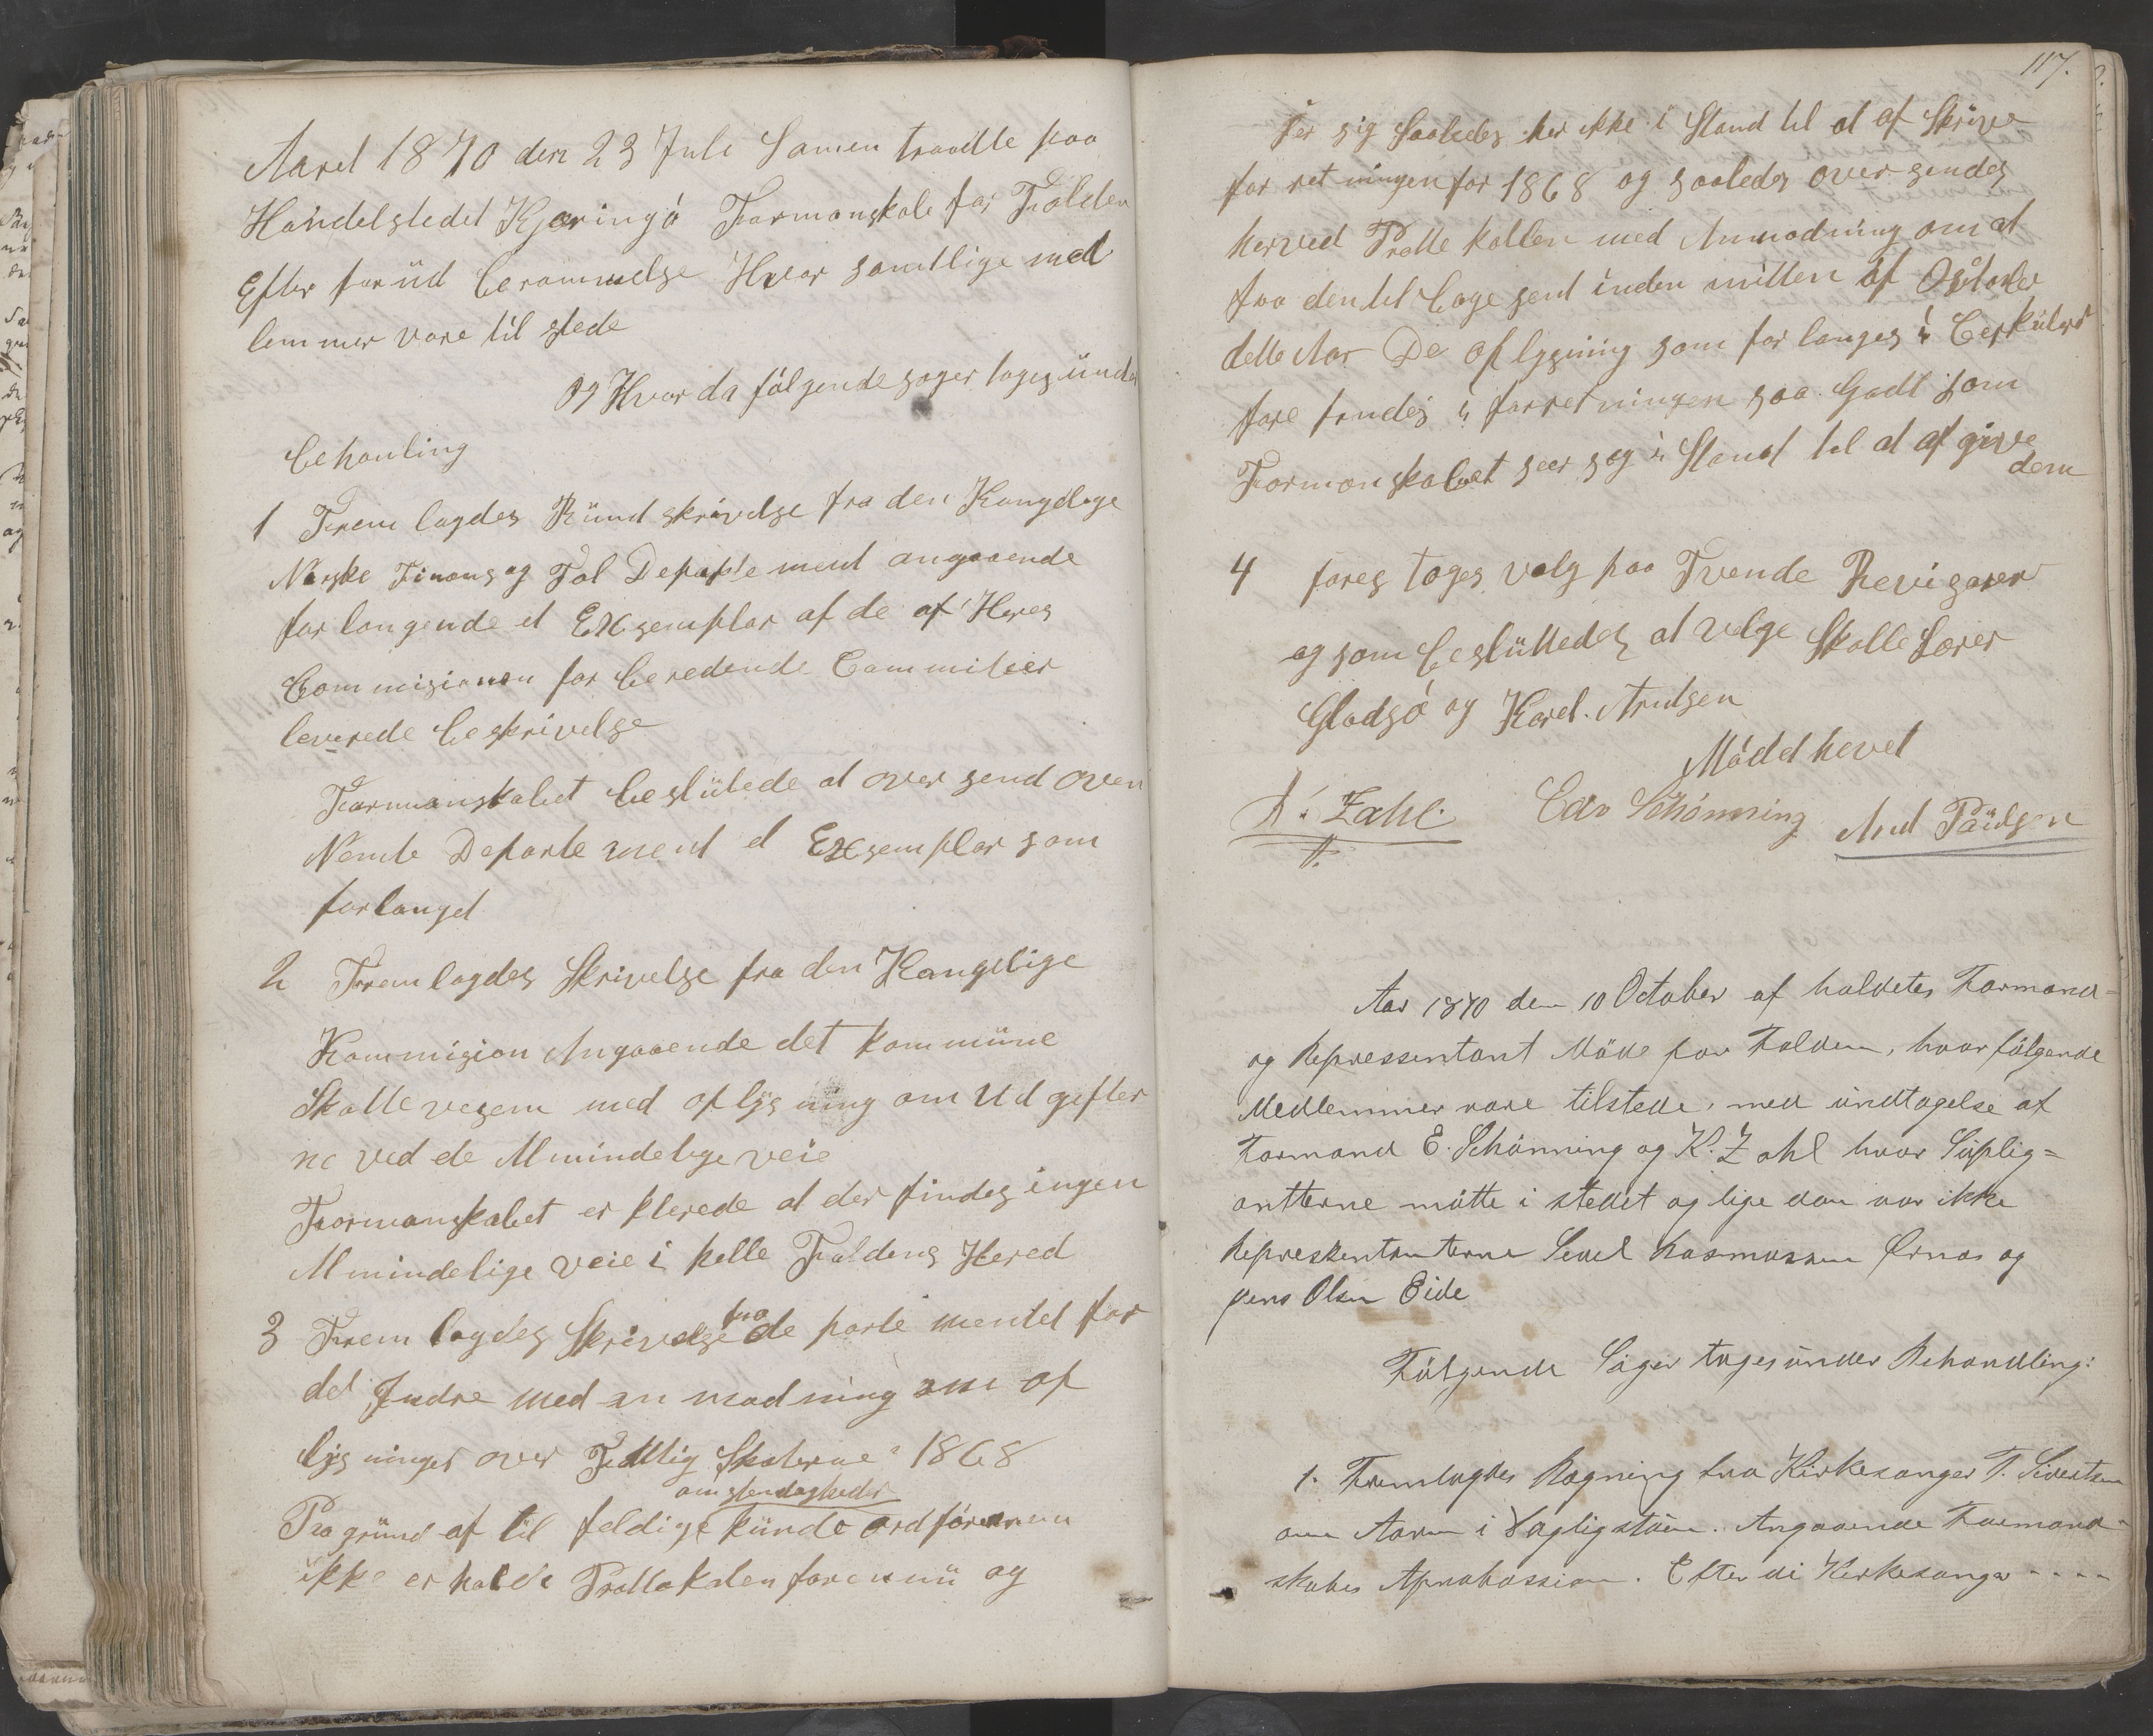 Aaret 1870 den 23 Juli Samen traadte paa
Handelstedet Kjæringö Formanskabe for Folden
Efter forüd berammelse Hvor samtlige med
lemmer vare til stede
og Hvor da fölgende sager toges ünder
behanling
1 Frem lagdesRünd skrivelse fra den Kongelige
Norske Finans og Tol Departement angaaende
for langende et Exsemplar af de af Heres
Commisionen for beredende Commiteer
leverede beskrivelse
Formanskabet beslütede at over send oven
Nemte Departement et Exsemplar som
forlanget
2 Frem lagdes Skrivelse fra den Kongelige
Kommision Angaaende det kommüne
Skolle vesen med oplysning om Udgifter
ne ved de Almindelige veie
Formanskabet er klerede at der findes ingen
Almindelige veie i helle Foldens Hered
3 Frem lagdes Skrivelse fra de parte mentet for
det Indre med an modning om op
lysninger over Fattig Skaterne i 1868
omstendigheder
Paa gründ af til feldige künde ordföreren
ikke erholde Prottokolen før ennü og
ser sig saaledes her ikke i Stand til at af Skrive
for ret ningen for 1868 og saaledes over sendes
herved Protte kollen med Anmodning om at
faa den til bage sent inden mitten af Oktober
dette Aar De oplysning som for langes i Cerkülær
fore findes i forretningen saa Godt som
Formanskabet seer sig i Stand til at afgive
dem
4 fores toges valg paa Tvende Revisorer
og som beslüttedes at velge Skolle Lærer
Gladsö og Karel. Arntsen
Mödet hevet
K. Zahl. Edv Schönning And Paülsen
117.
Aar 1870 den 10 October af holdetes Formand=
og Repressentant Möde for Folden, hvor fölgende
Medlemmer vare tilstede, med ündtagelse af
Formand E. Schönning og K. Zahl hvor Süplig=
antterne mötte i stedet og lige dan var ikke
Representanterne Sevel Rasmussen Ørnes og
Jens Olsen Eide
Fölgende Sager toges ünder Behandling:
1. Fremlagdes Regning fra Kirkesanger T. Sivertsen
om Aaren i Sagligstöen. Angaaende Formand=
skabes Aprobassion. Efter di Kirkesanger - - - -